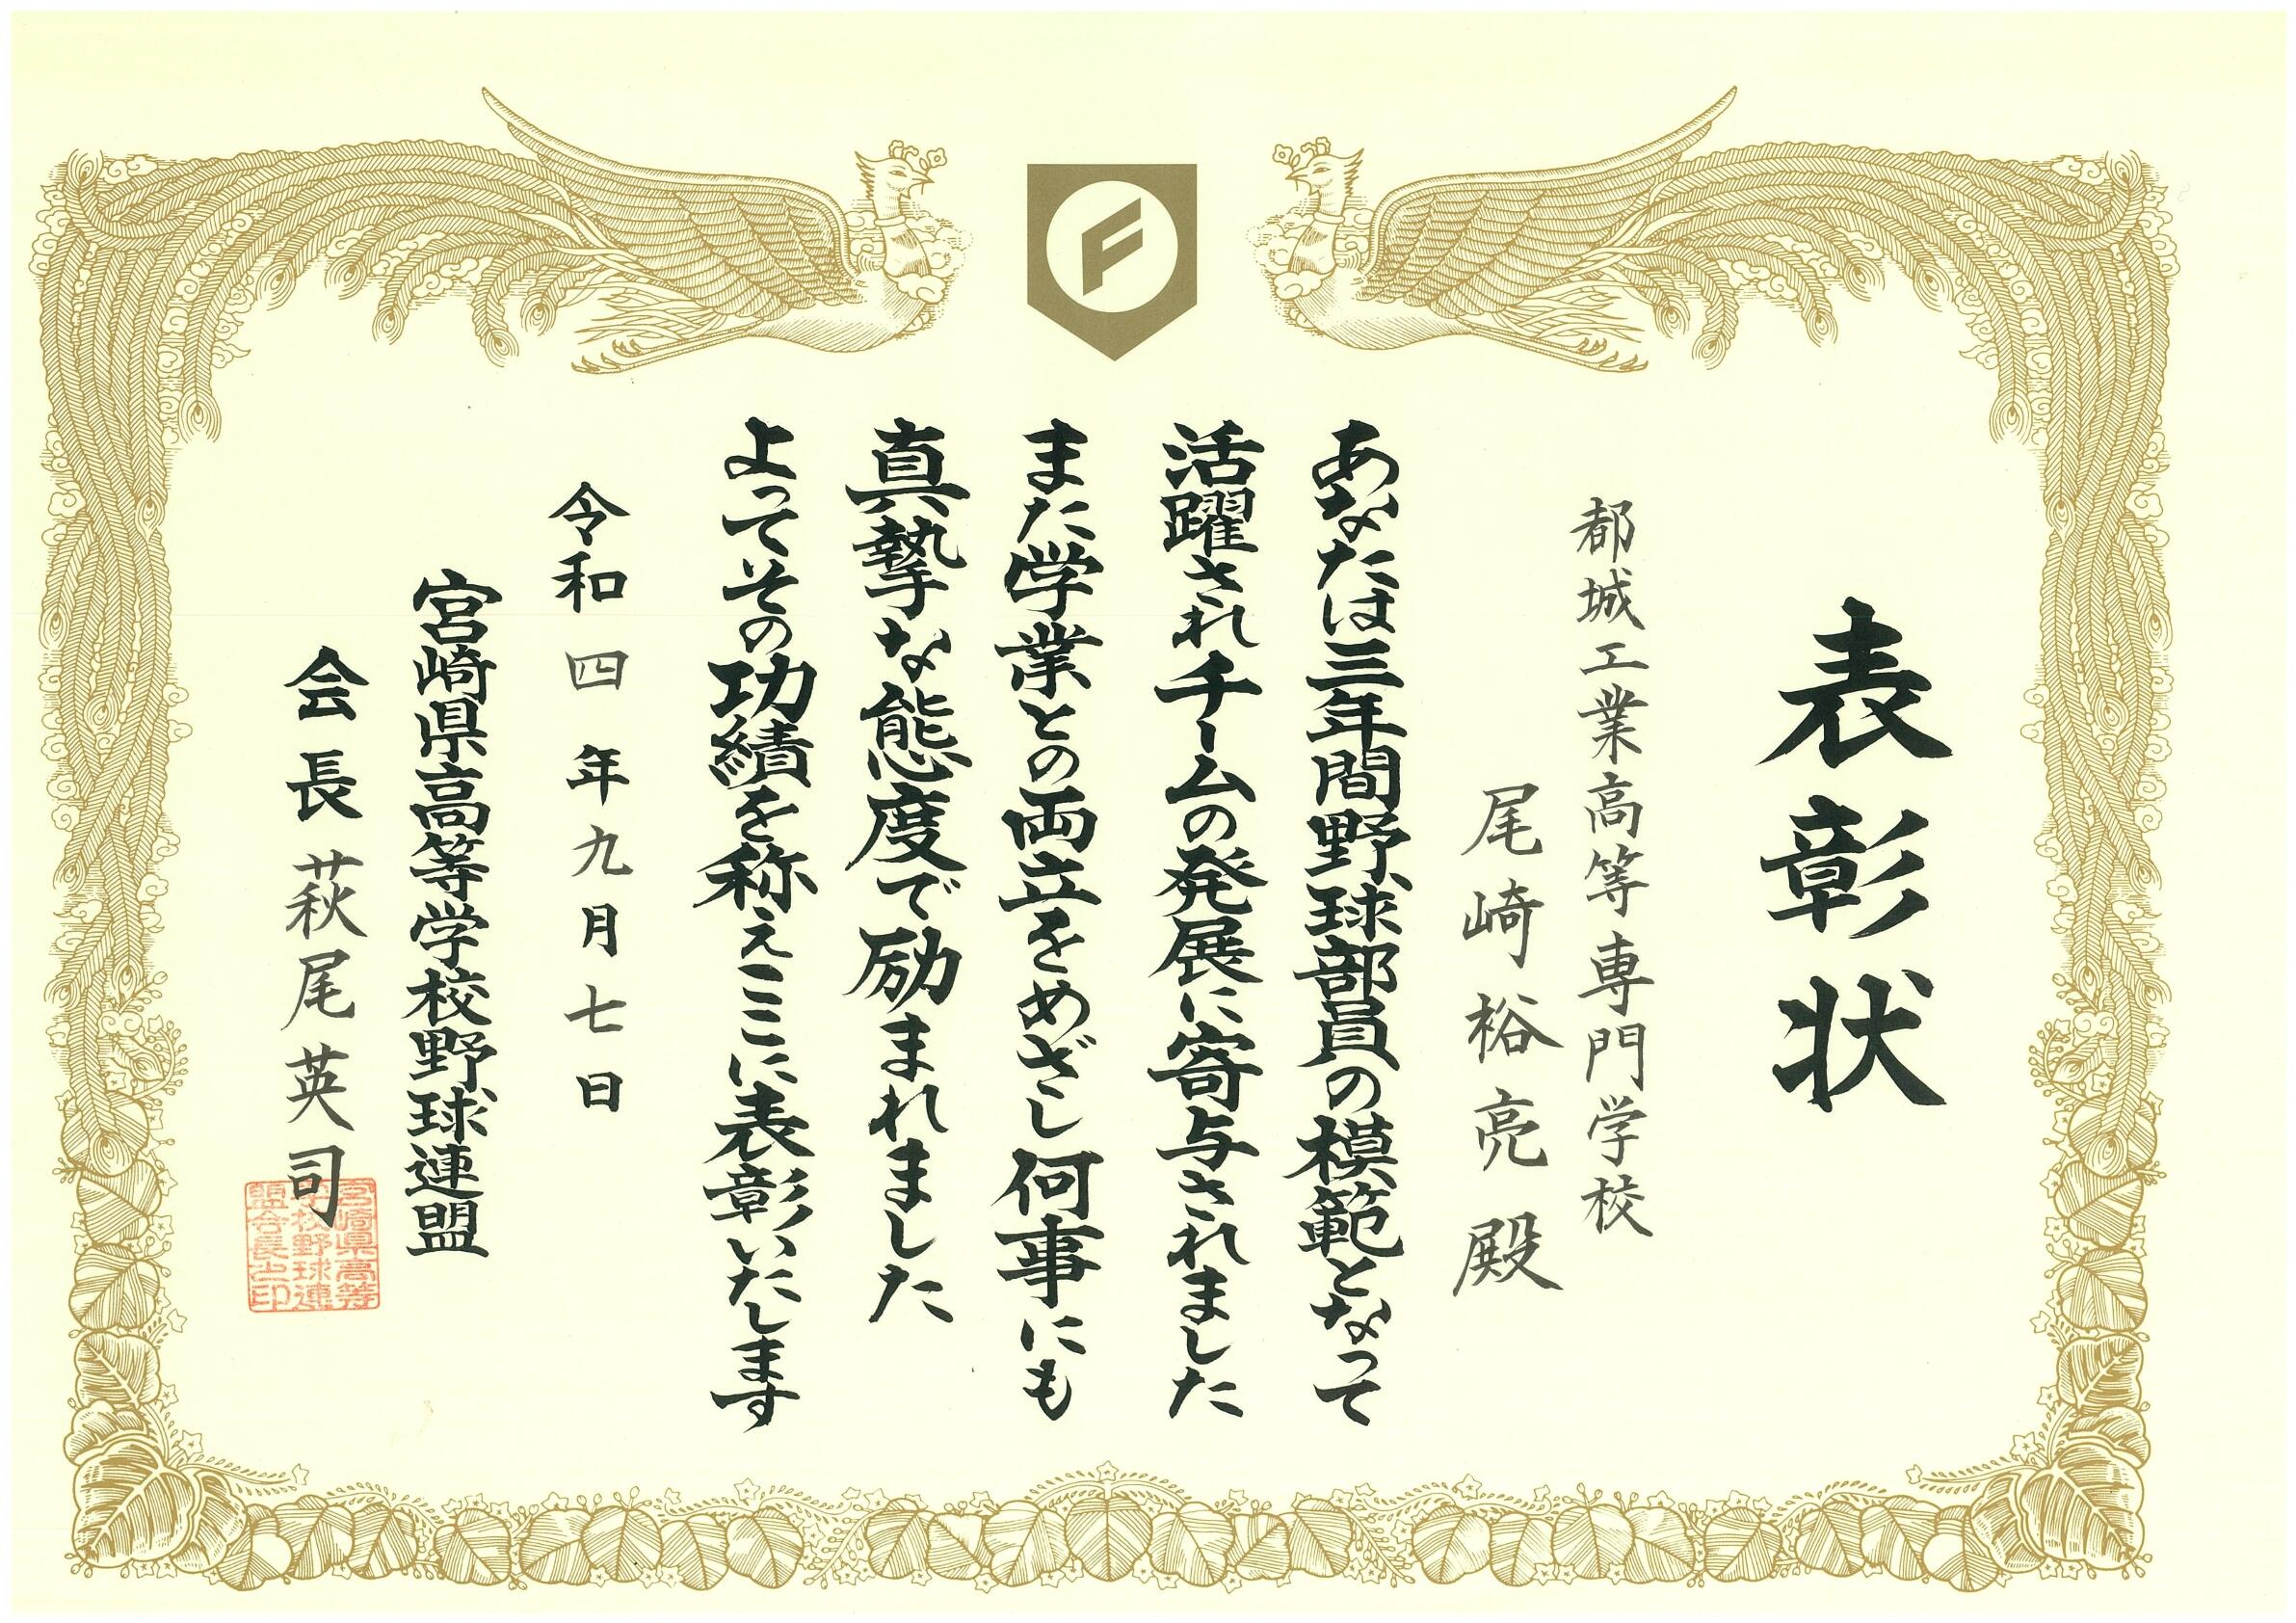 表彰状
都城工業高等専門学校
尾崎裕亮殿
あなたは三年間野球部員の模範となって
活躍されチームの発展に寄与されました
また学業との両立をめざし何事にも
真摯な態度で励まれました
よってその功績を称えここに表彰いたします
令和四年九月七日
宮崎県高等学校野球連盟
会長萩尾英司
宮崎県高等
学校野球連
盟会長之印
F